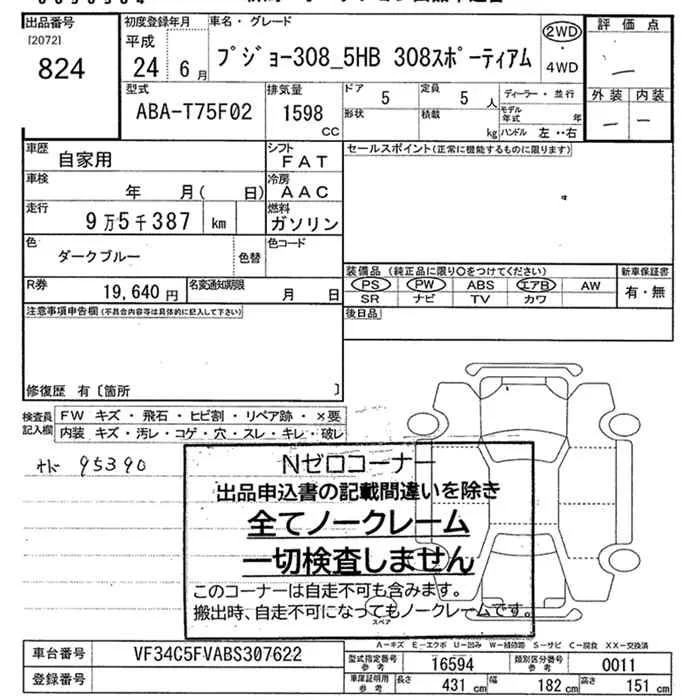 出品番号 初度登録年月 車名・グレード 評価点
[2072] 平成 2WD
824 24 6月 プジョー308_5HB 308スポーティアム ・4WD
型式 排気量 ドア 定員 ディーラー・並行 外装 内装
ABA-T75F02 1598 CC 5 5人 モデル年式 年
形状 積載 kg ハンドル 左・・右
車歴 自家用 シフト FAT セールスポイント(正常に機能するものに限ります)
車検 年 月( 日) 冷房 AAC
走行 9万5千387 km 燃料 ガソリン
色 ダークブルー 色替 色コード
装備品(純正品に限り○をつけてください) 新車保証書
R券 19,640円 名変通知期限 月 日 PS PW ABS エアB AW 有・無
SR ナビ TV カワ
注意事項申告欄(不具合内容等は具体的に記入して下さい) 後日品
修復歴 有〔箇所 〕
検査員記入欄 FW キズ・飛石・ヒビ割・リペア跡・×要
内装 キズ・汚レ・コゲ・穴・スレ・キレ・破レ
95390
Nゼロコーナー
出品申込書の記載間違いを除き
全てノークレーム
一切検査しません
このコーナーは自走不可も含みます。
搬出時、自走不可になってもノークレームです。
スペア
A-キズ E-エクボ U-凹み W-補修跡 S-サビ C-腐食 XX-交換済
車台番号 VF34C5FVABS307622 型式指定番号参考 16594 類別区分番号参考 0011
登録番号 車庫証明用参考 長さ 431 cm 幅 182 cm 高さ 151 cm